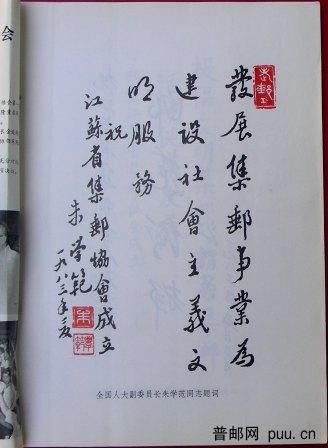 老郵工
發展集郵事業為
建设社會主義文
明服務
祝
江蘇省集郵協會成立
朱学範
一九八三年
全国人大副委员长朱学范同志题词
会
普邮网 puu.cn